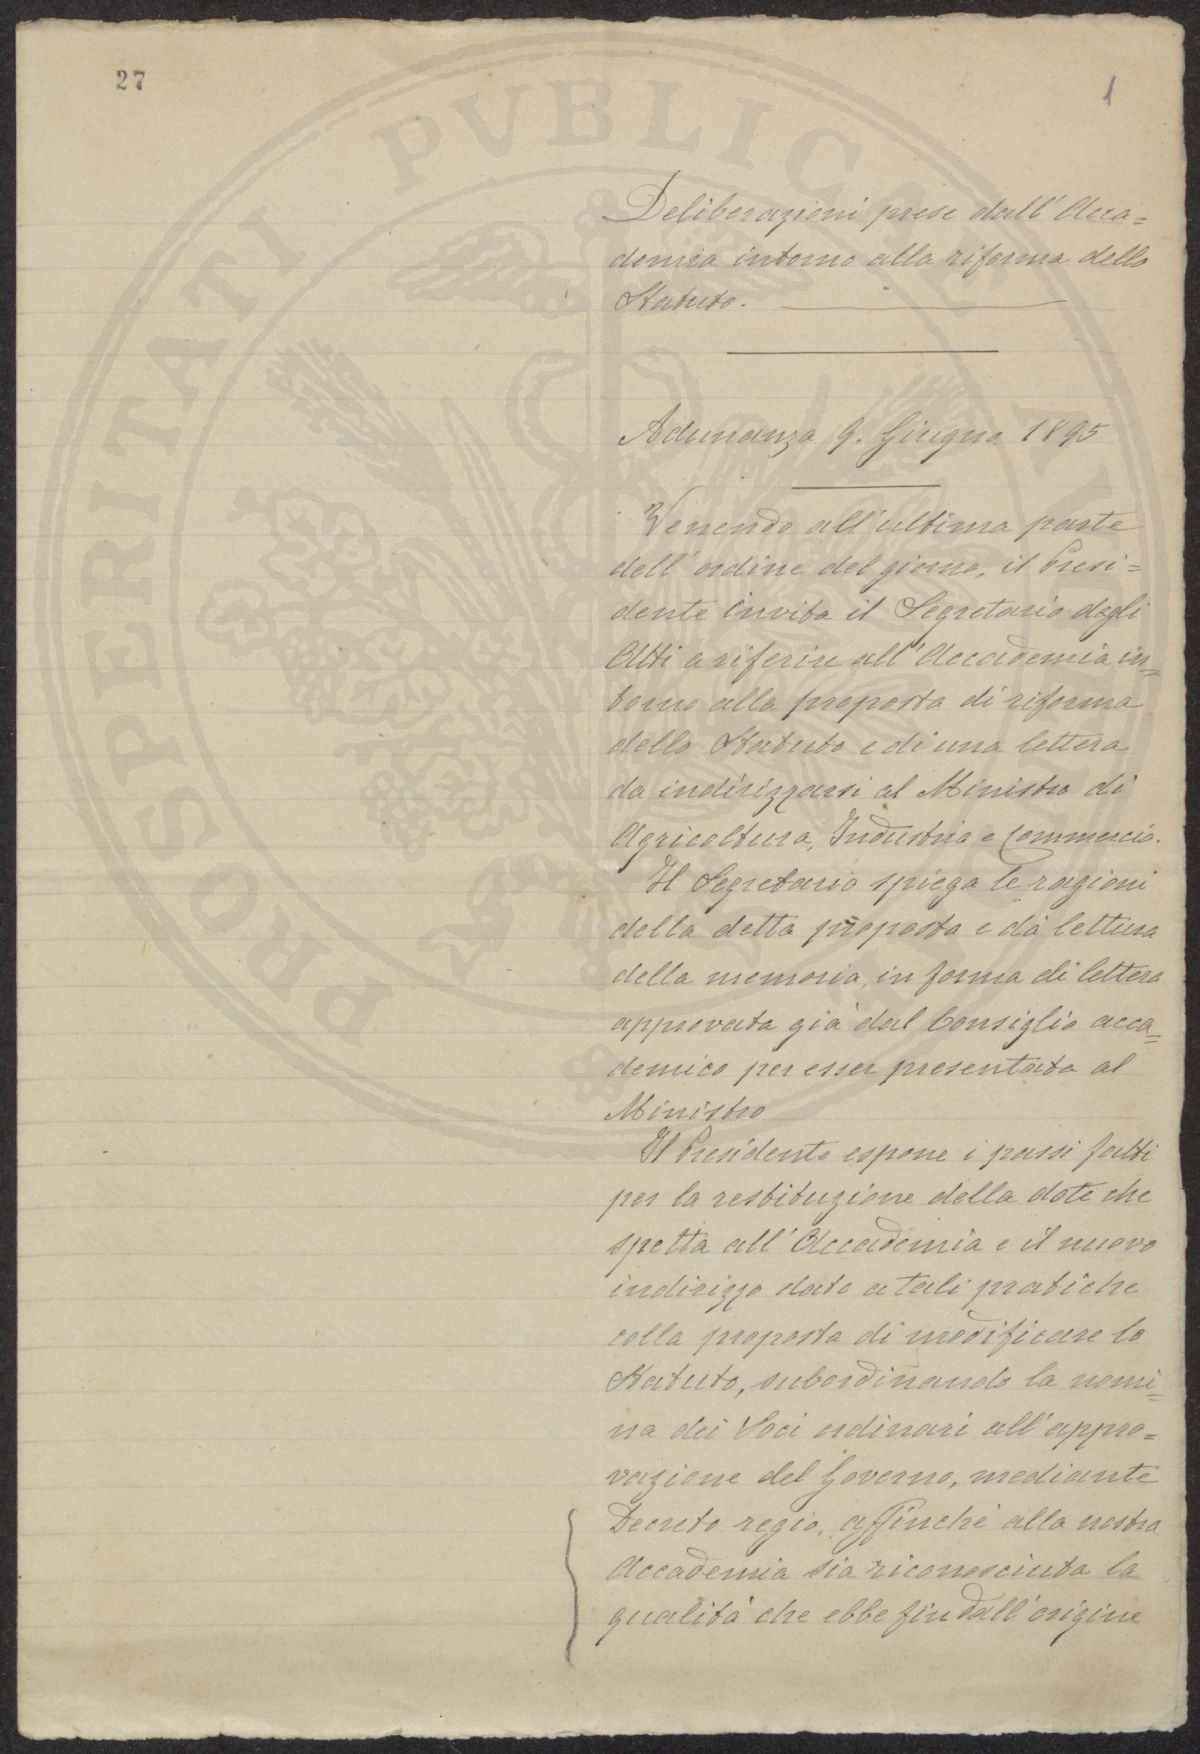 27
1
Deliberazioni prese dall'Acca=
demia intorno alla riforma dello
Statuto.
Adunanza 9. Giugno 1895
Venendo all'ultima parte
dell'ordine del giorno, il Presi=
dente invita il Segretario degli
Atti a riferire all'Accademia in=
torno alla proposta di riforma
dello Statuto e di una lettera
da indirizzarsi al Ministro di
Agricoltura, Industria e Commercio.
Il Segretario spiega le ragioni
della detta proposta e dà lettura
della memoria, in forma di lettera
approvata già dal Consiglio acca=
demico per esser presentata al
Ministro
Il Presidente espone i passi fatti
per la restituzione della dote che
spetta all'Accademia e il nuovo
indirizzo dato a tali pratiche
colla proposta di modificare lo
Statuto, subordinando la nomi=
na dei Soci ordinari all'appro=
vazione del Governo, mediante
Decreto regio, affinchè alla nostra
Accademia sia riconosciuta la
qualità che ebbe fin dall'origine
PROSPERITATI PVBLICAE AVGENDAE